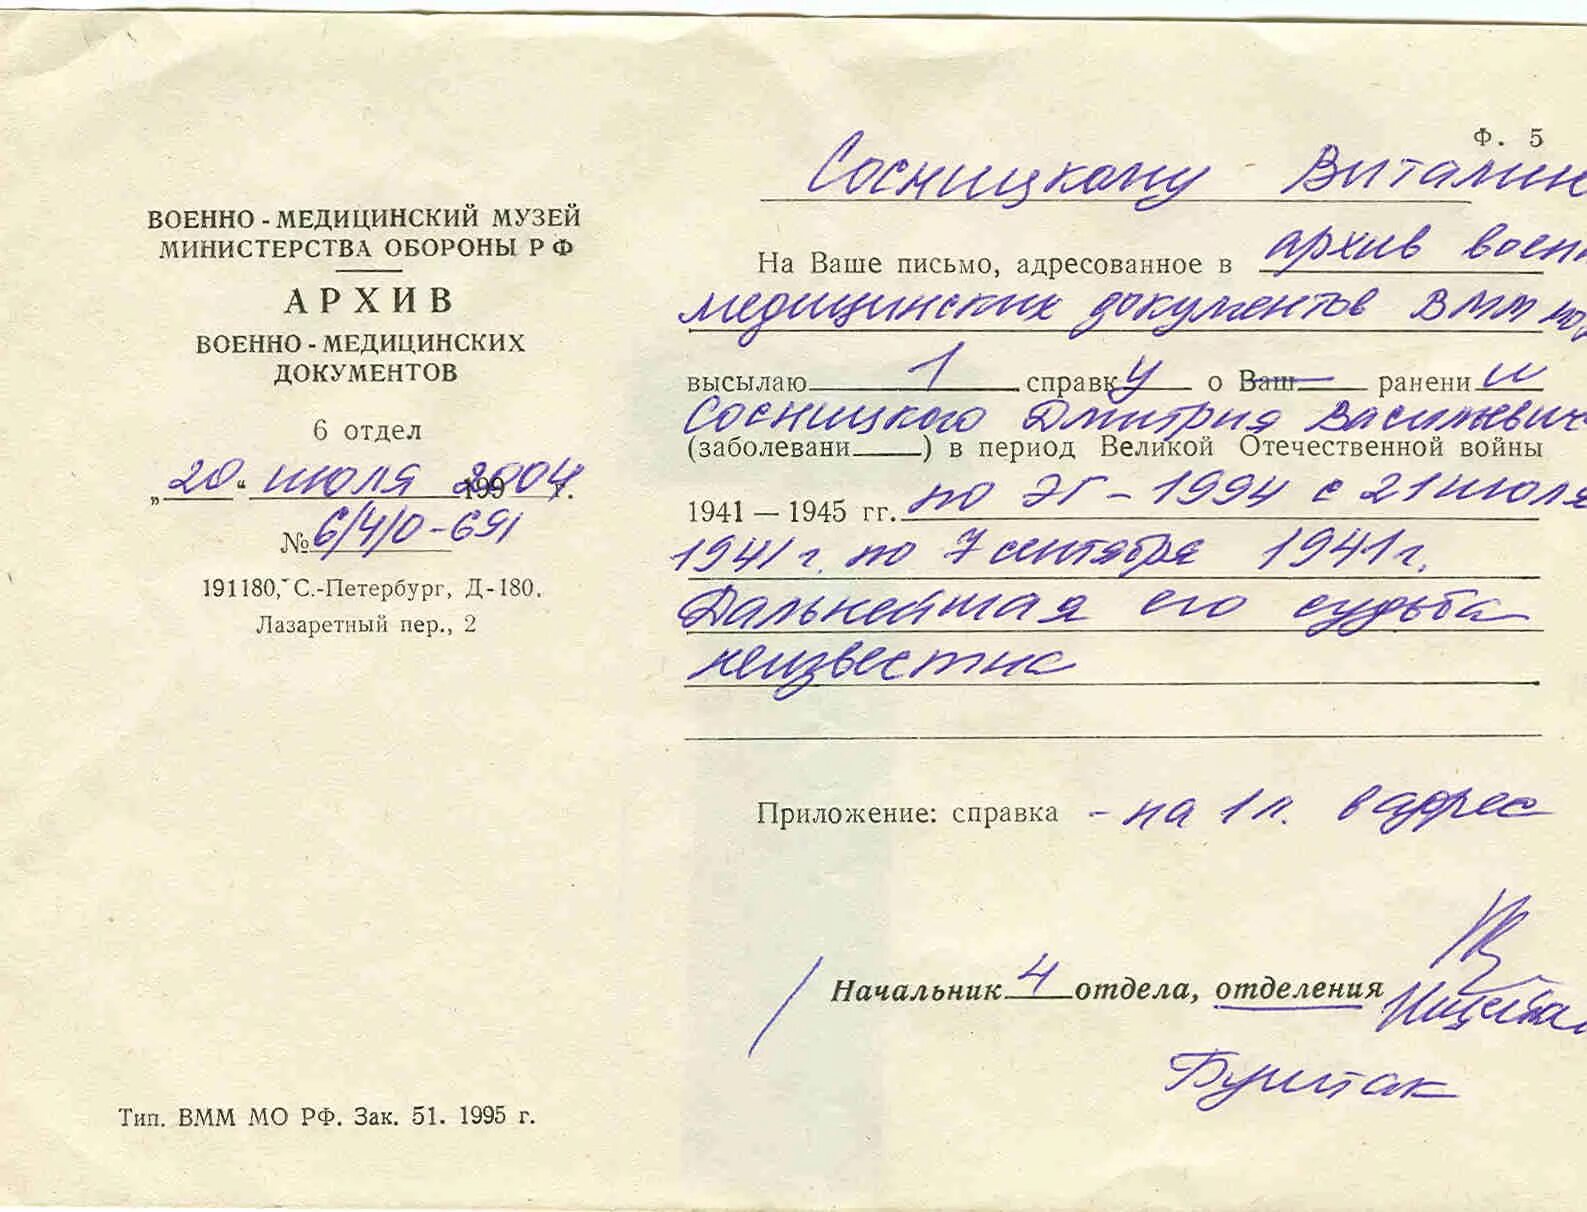 ВОЕННО - МЕДИЦИНСКИЙ МУЗЕЙ
МИНИСТЕРСТВА ОБОРОНЫ РФ
АРХИВ
ВОЕННО - МЕДИЦИНСКИХ
ДОКУМЕНТОВ
6 отдел
„20“ июля 2004 г.
№ 6/4/0-691
191180, С.-Петербург, Д-180.
Лазаретный пер., 2
Тип. ВММ МО РФ. Зак. 51. 1995 г.
Ф. 5
Сосницкому Виталию
На Ваше письмо, адресованное в архив воен
медицинских документов ВММ
высылаю 1 справку о Ваш ранени и
Сосницкого Дмитрия Васильевич
(заболевани ) в период Великой Отечественной войны
1941 — 1945 гг. по ЭГ - 1994 с 21 июля
1941 г. по 7 сентября 1941 г.
Дальнейшая его судьба
неизвестна
Приложение: справка - на 1 л. в адрес
Начальник 4 отдела, отделения